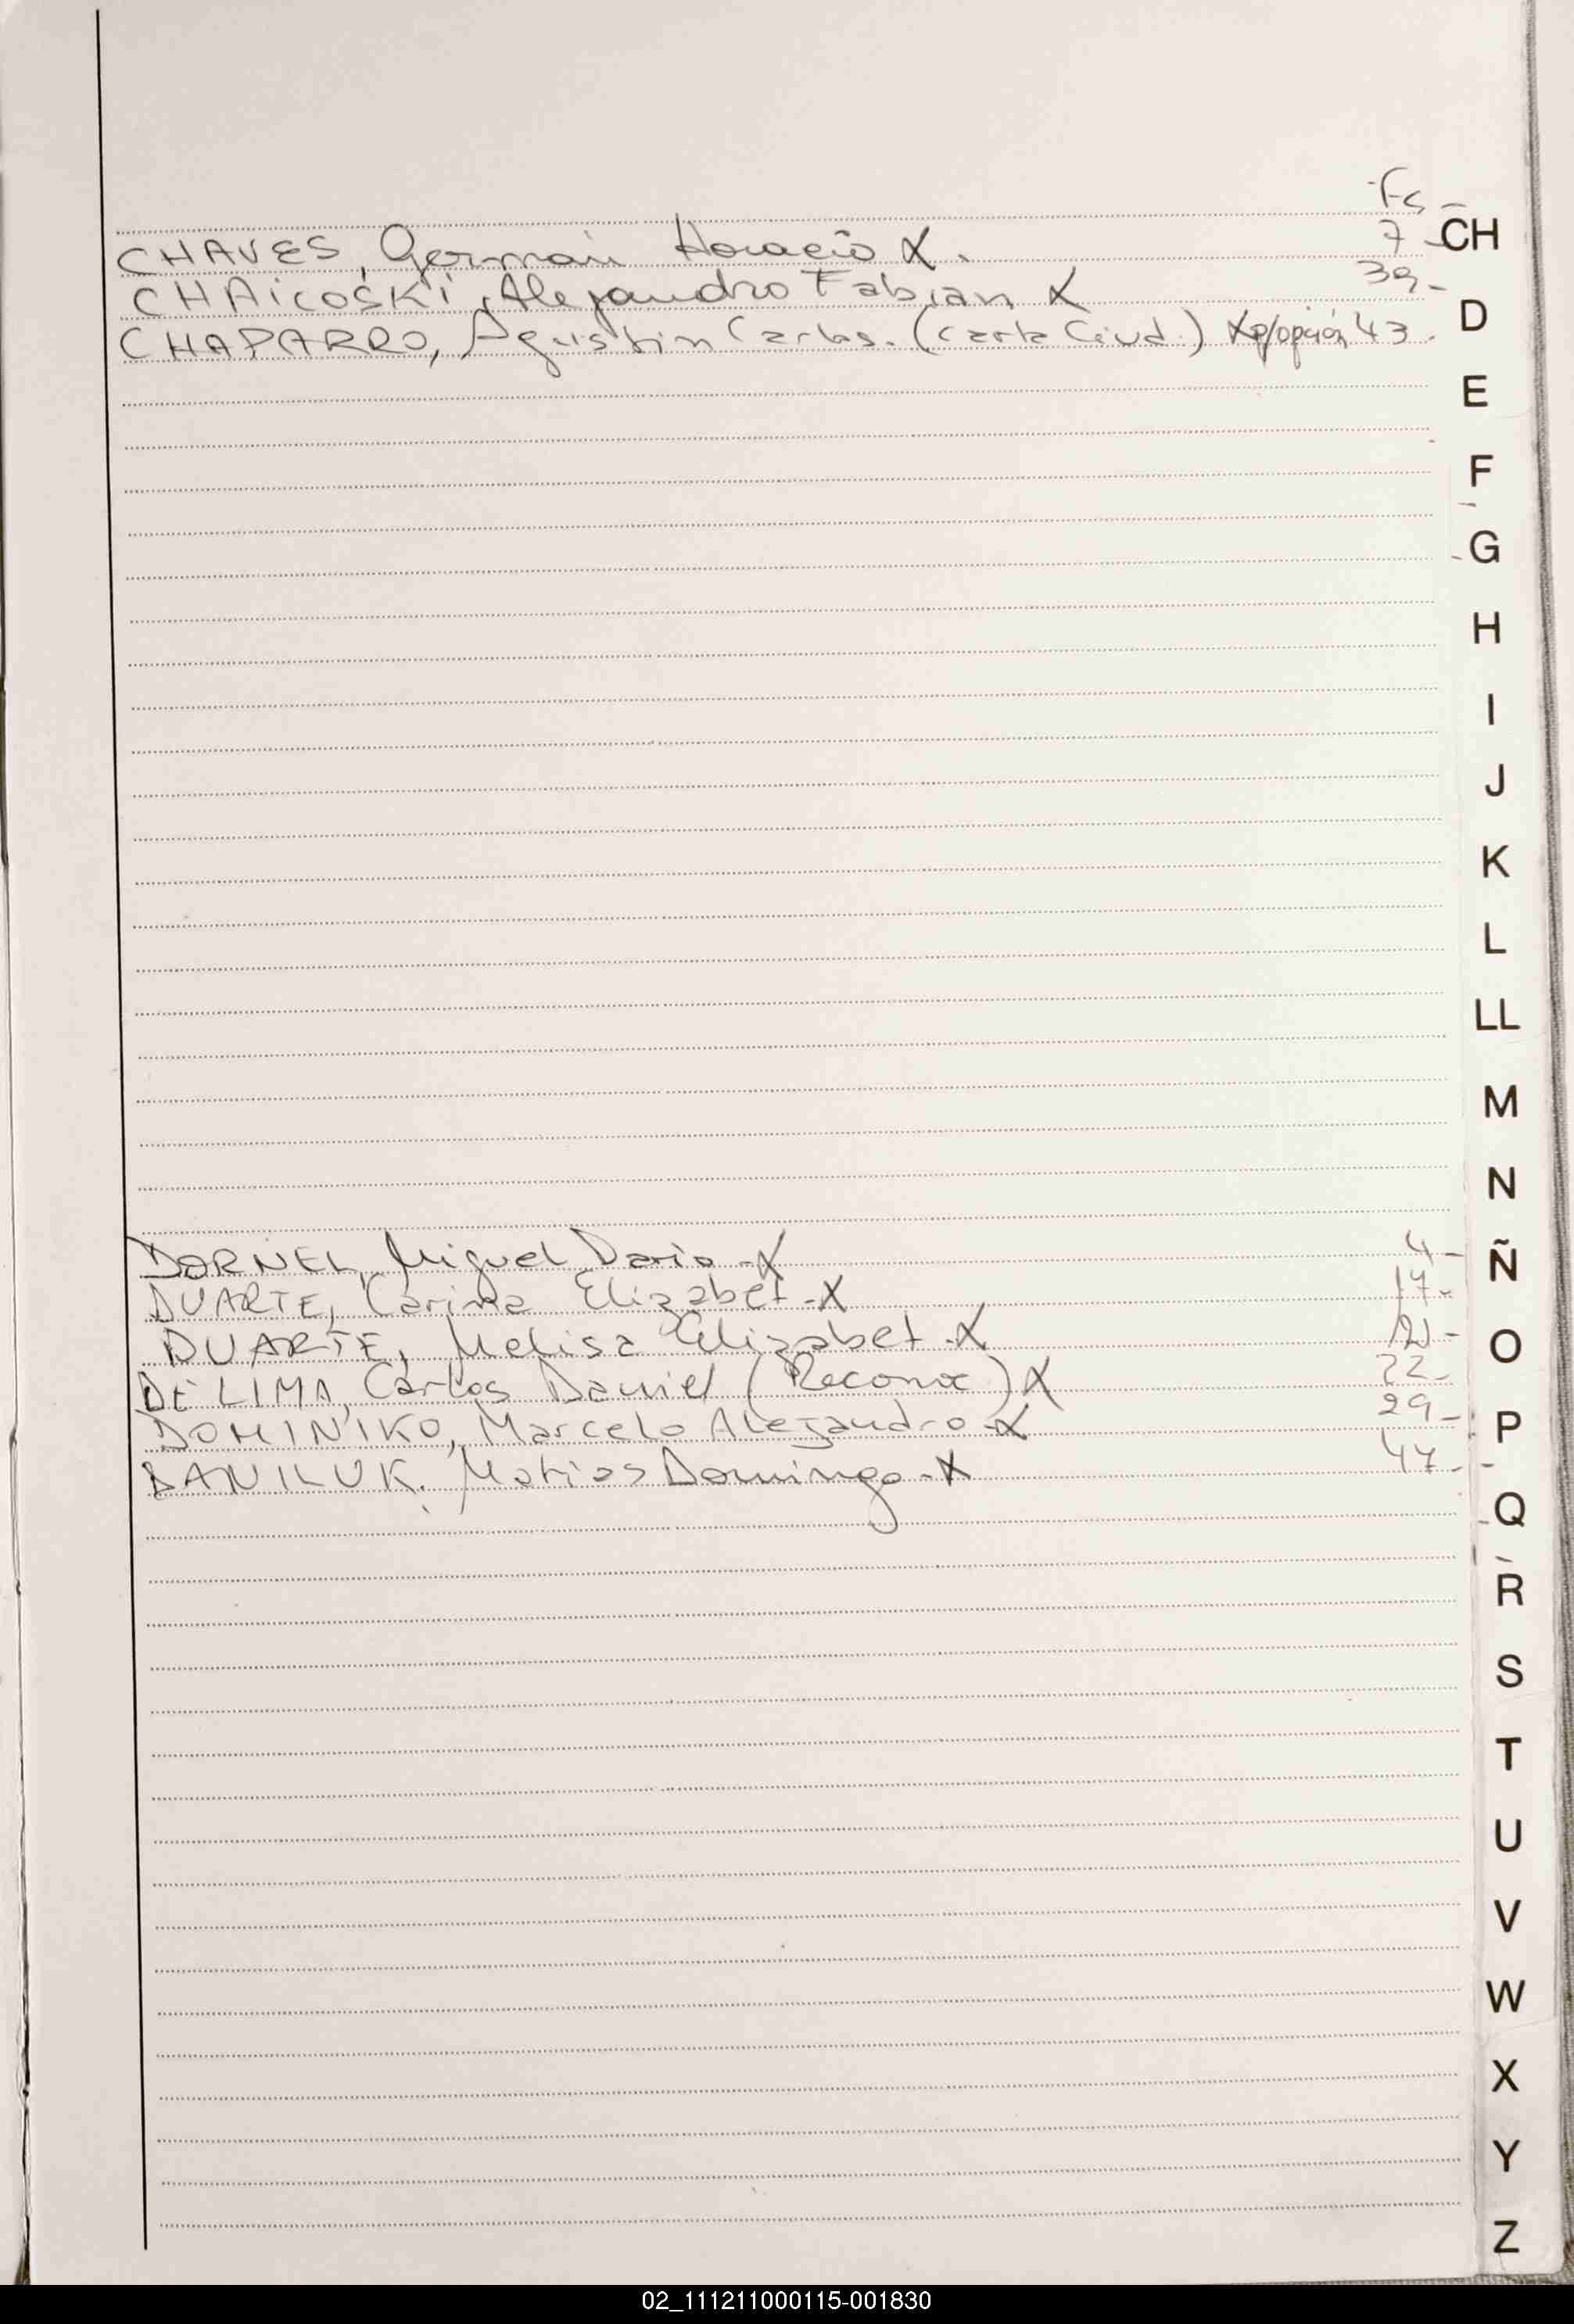 Fs -
CHAVES, Germán Horacio X. 7 - CH
CHAICOSKI, Alejandro Fabian X 39 -
D
CHAPARRO, Agustin Carlos. (Carta Ciud.) X p/opción 43 -
E
F
G
H
I
J
K
L
LL
M
N
DORNEL, Miguel Dario - X 4 -
Ñ
DUARTE, Carina Elizabet - X 17 -
DUARTE, Melisa Elizabet - X 21 -
O
DE LIMA, Carlos Daniel (Reconoc) X 22 -
DOMINIKO, Marcelo Alejandro - X 29 -
P
DANILUK, Matias Domingo - X 47 -
Q
R
S
T
U
V
W
X
Y
Z
02_111211000115-001830